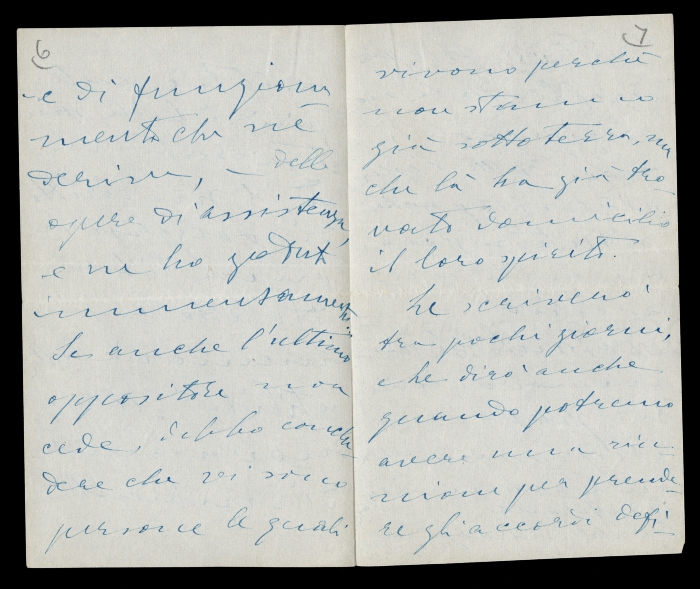 6
e di funziona
mento che vi è
derivan, – delle
opere di assistenza,
e ne ho goduto
immensamente.
Se anche l'ultimo
oppositore non
cede, debbo conclu
dere che vi sono
persone le quali
7
vivono perchè
non stanno
già sotto terra, ma
che là ha già tro
vato domicilio
il loro spirito.
Le scriverò
tra pochi giorni,
e le dirò anche
quando potremo
avere una riu
nione per prende
re gli accordi defi